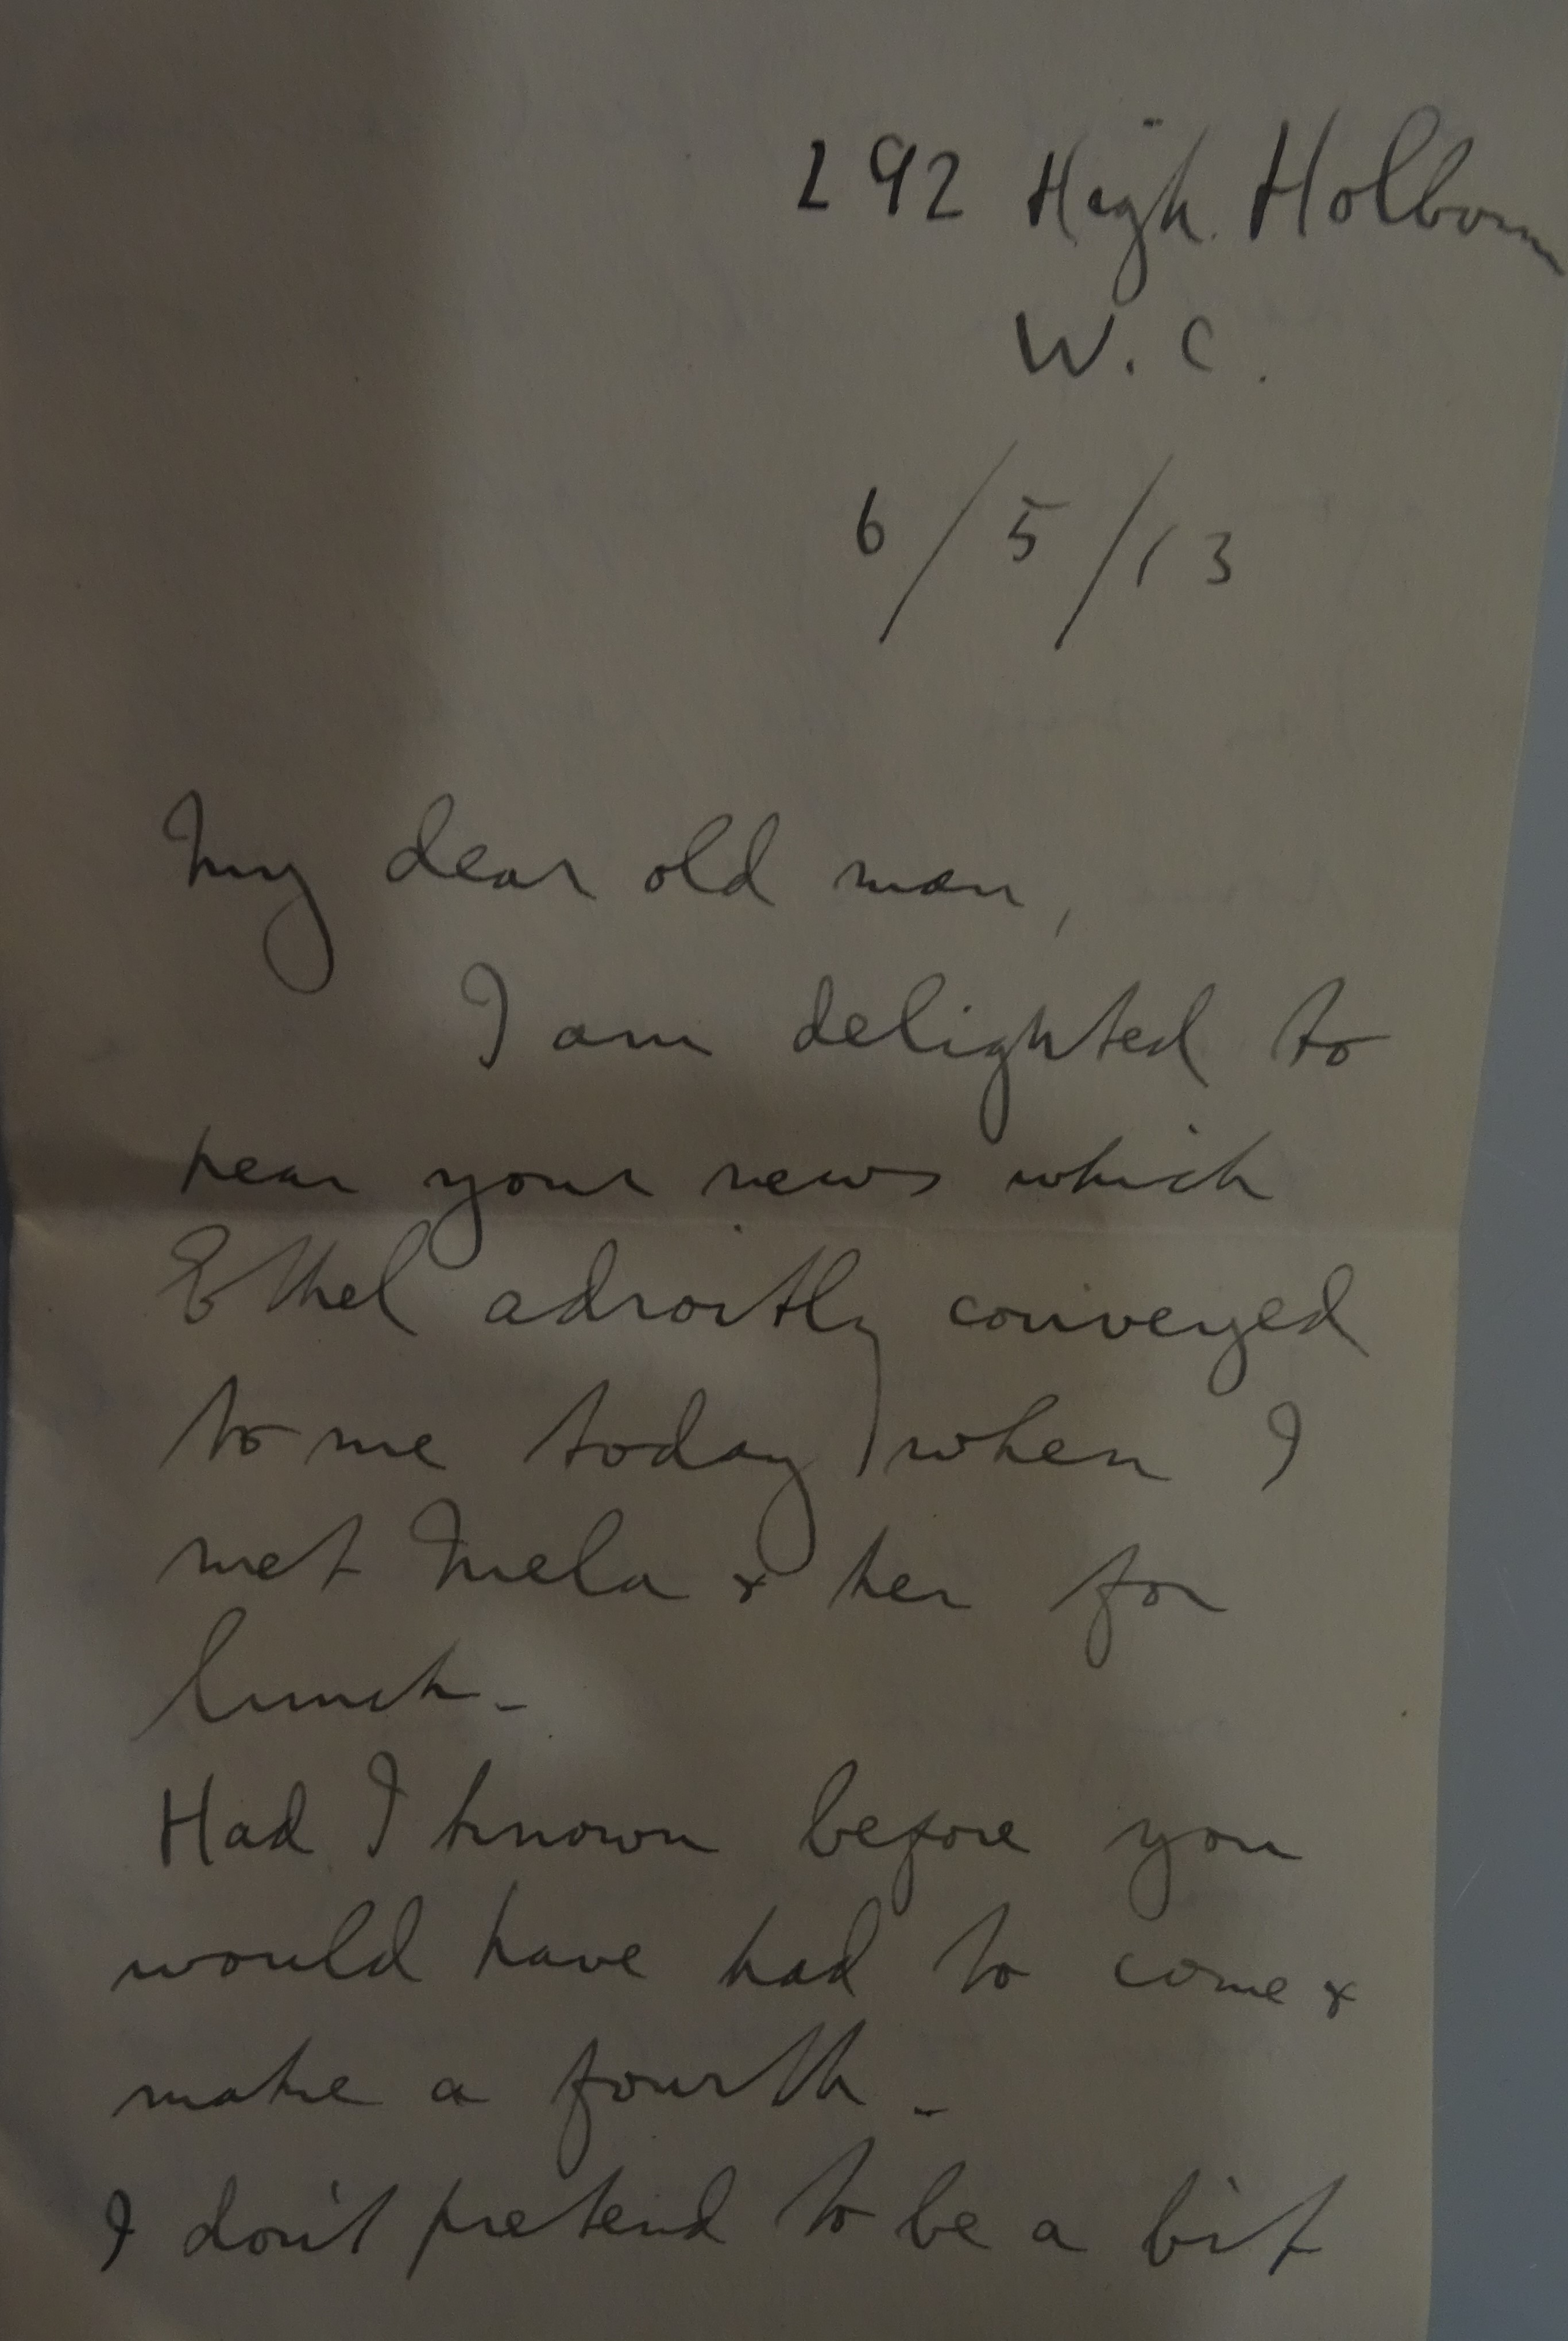 292 High Holborn
W. C.
6/5/13
My dear old man,
I am delighted to
hear your news which
Ethel adroitly conveyed
to me today when I
met Mela & her for
lunch -
Had I known before you
would have had to come &
make a fourth -
I don't pretend to be a bit